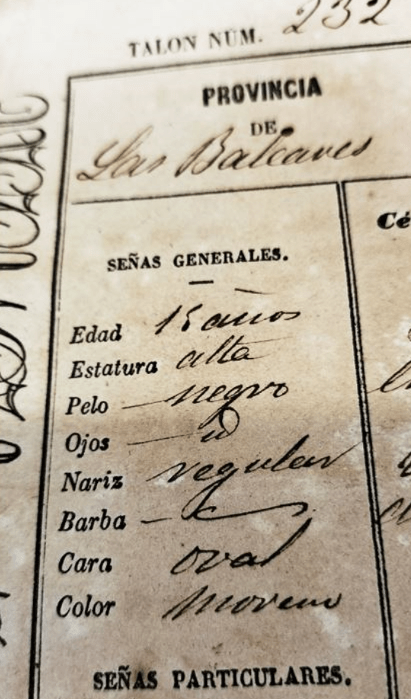 TALON NÚM. 232
PROVINCIA
DE
Las Baleares
SEÑAS GENERALES.
Edad 15 años
Estatura alta
Pelo negro
Ojos id
Nariz regular
Barba
Cara oval
Color moreno
SEÑAS PARTICULARES.
Cé